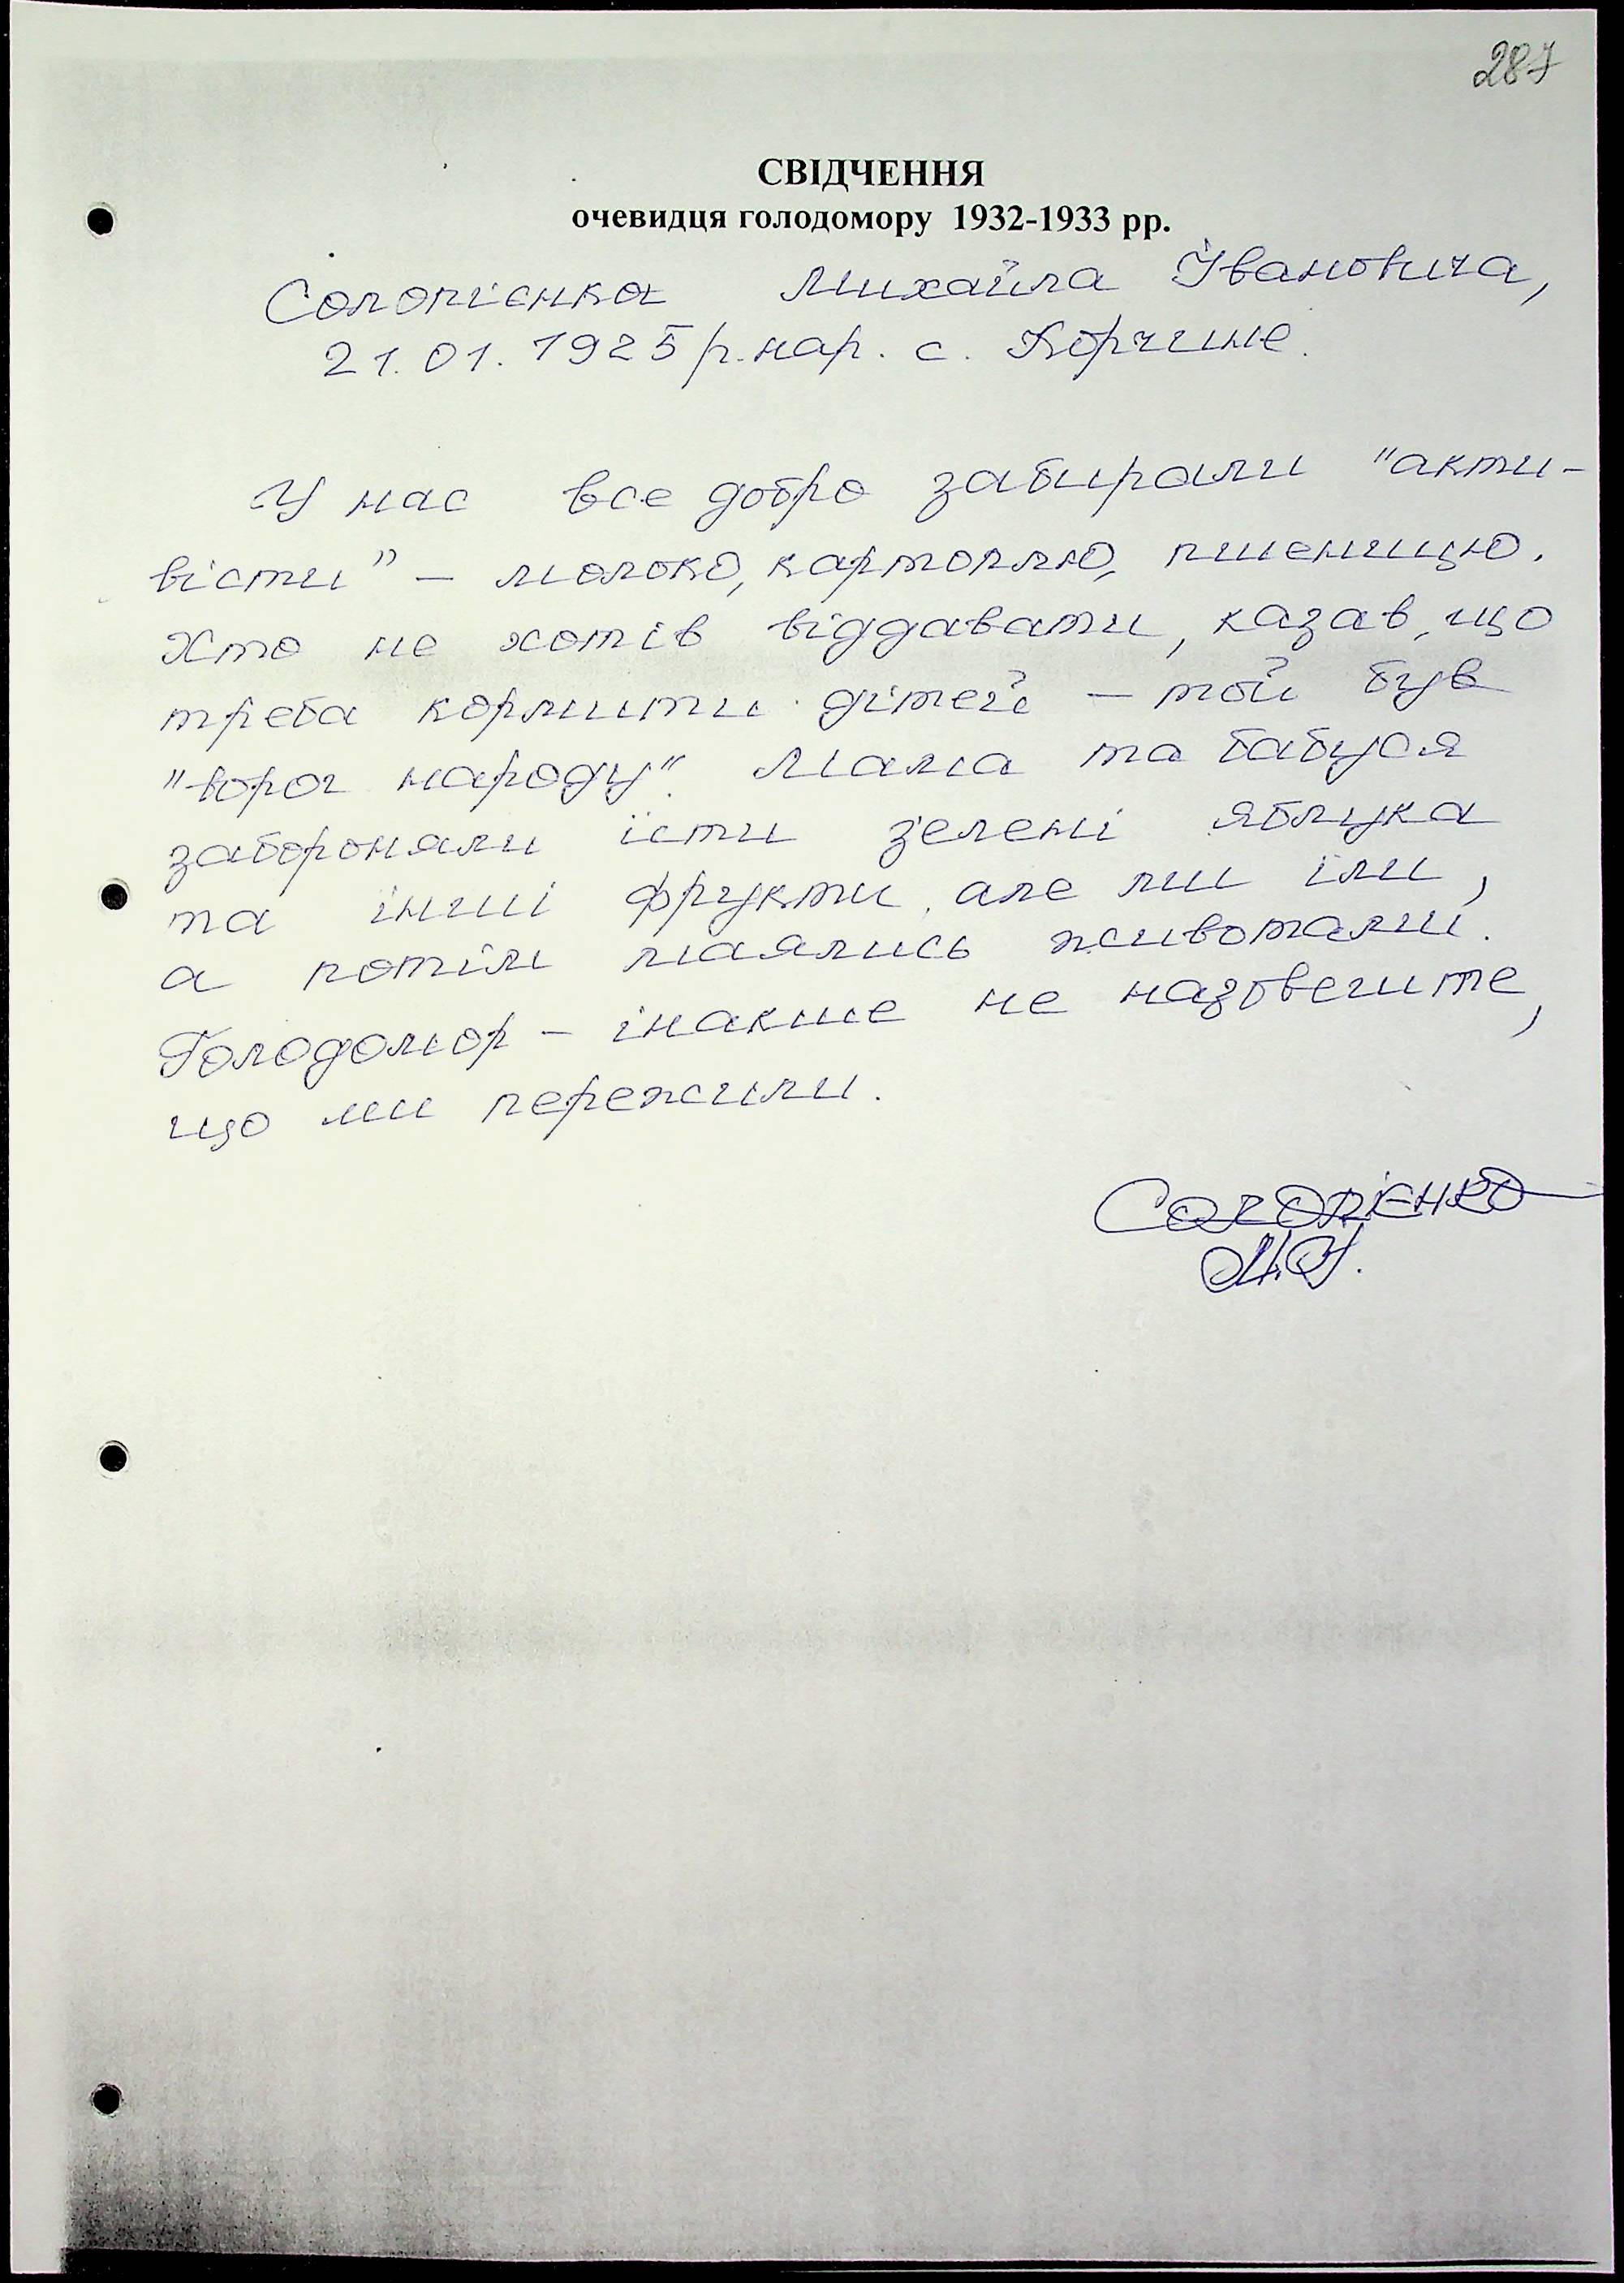 287
СВІДЧЕННЯ
очевидця голодомору 1932-1933 рр.
Солопієнка Михайла Івановича,
21.01.1925 р. нар. с. Корчине.
У нас все добро забирали "акти-
вісти" – молоко, картоплю, пшеницю.
Хто не хотів віддавати, казав, що
треба кормити дітей – той був
"ворог народу". Мама та бабуся
забороняли їсти зелені яблука
та інші фрукти, але ми їли,
а потім маялись животами.
Голодомор – інакше не назовешите,
що ми пережили.
Солопієнко
М.І.